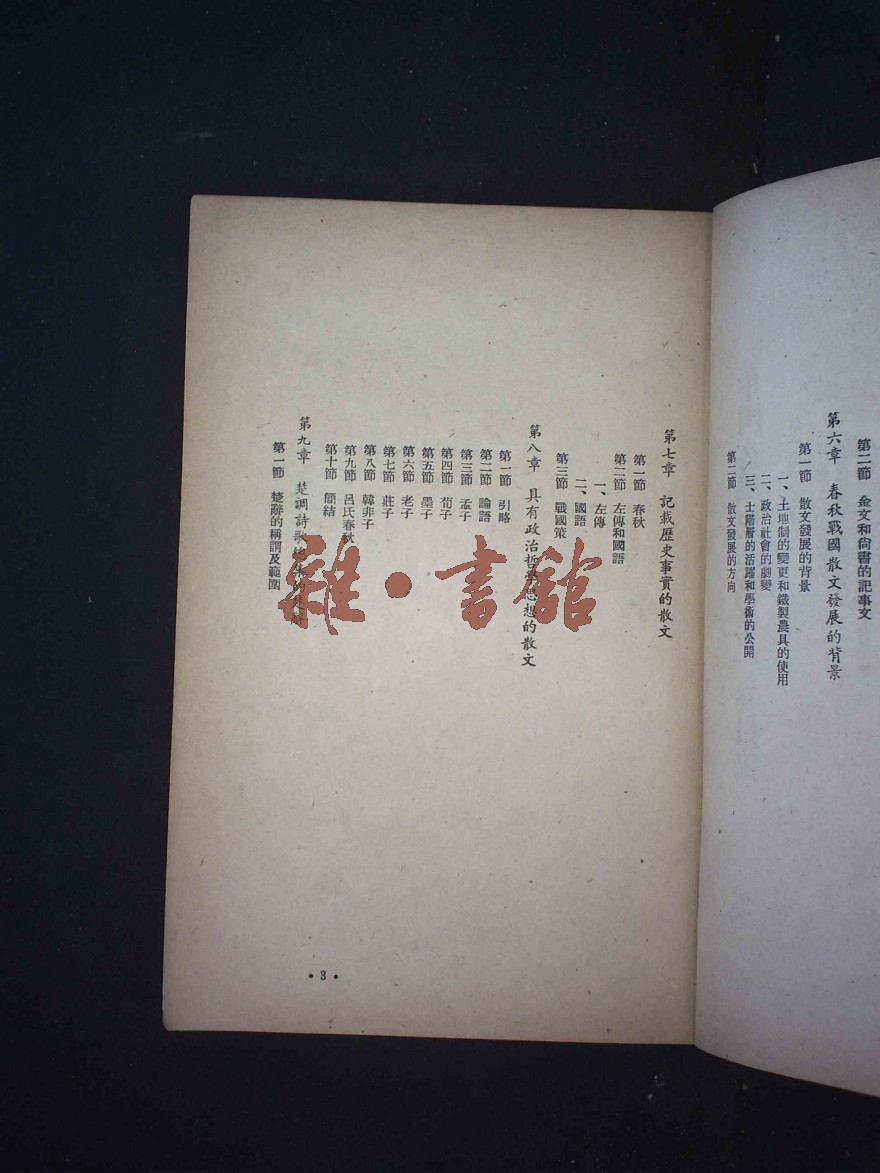 第二節 金文和尚書的記事文
第六章 春秋戰國散文發展的背景
第一節 散文發展的背景
一、土地制的變更和鐵製農具的使用
二、政治社會的劇變
三、士階層的活躍和學術的公開
第二節 散文發展的方向
第七章 記載歷史事實的散文
第一節 春秋
第二節 左傳和國語
一、左傳
二、國語
第三節 戰國策
第八章 具有政治哲學思想的散文
第一節 引略
第二節 論語
第三節 孟子
第四節 荀子
第五節 墨子
第六節 老子
第七節 莊子
第八節 韓非子
第九節 呂氏春秋
第十節 簡結
第九章 楚調詩歌
第一節 楚辭的稱謂及範圍
•3•
雜·書館